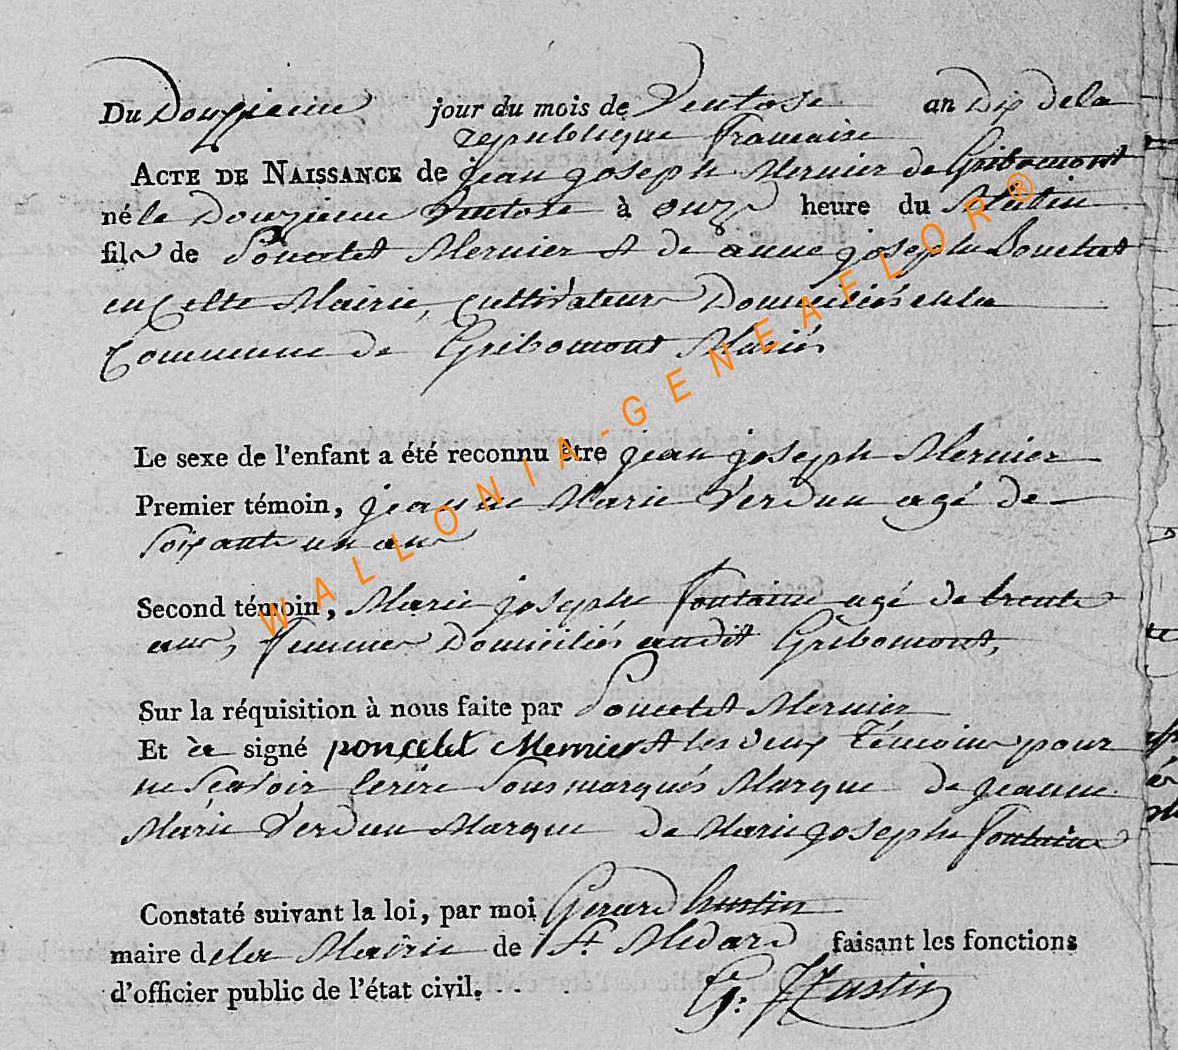 Du Douzzieme jour du mois de Ventose an Dix dela
republique francaise
ACTE DE NAISSANCE de jean joseph Mernier de Gribomont
né le Douzieme Ventose à onze heure du Matin
fils de Poncelet Mernier et de anne joseph
en Cette Mairie, Cultivateurs Domiciliés en la
Commune de Gribomont Mariés
Le sexe de l'enfant a été reconnu être jean joseph Mernier
Premier témoin, jeanne Marie Verdun agé de
Soixante un ans
Second témoin, Marie joseph fontaine agé de trente
ans, femmes Domiciliés audit Gribomont,
Sur la réquisition à nous faite par Poncelet Mernier
Et signé poncelet Mernier et les deux Témoins pour
ne Scavoir Ecrire Sous marqués Marque de jeanne
Marie Verdun Marque de Marie joseph fontaine
Constaté suivant la loi, par moi Gerard hustin
maire dela Mairie de St. Medard faisant les fonctions
d'officier public de l'état civil.
G: Hustin
WALLONIA-GENEAFLOR®